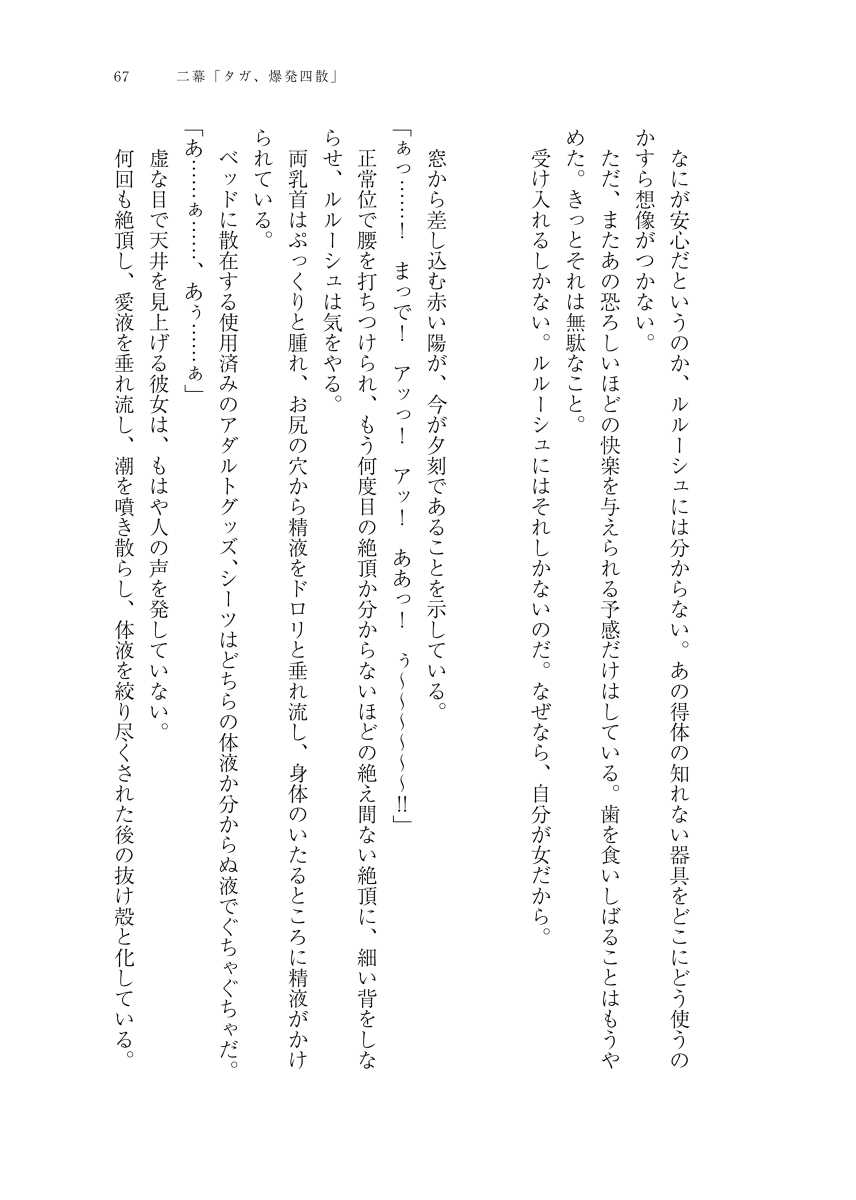 67　二幕「タガ、爆発四散」
なにが安心だというのか、ルルーシュには分からない。あの得体の知れない器具をどこにどう使うの
かすら想像がつかない。
ただ、またあの恐ろしいほどの快楽を与えられる予感だけはしている。歯を食いしばることはもうや
めた。きっとそれは無駄なこと。
受け入れるしかない。ルルーシュにはそれしかないのだ。なぜなら、自分が女だから。
窓から差し込む赤い陽が、今が夕刻であることを示している。
「ぁっ……！　まっで！　アッっ！　アッ！　ああっ！　ぅ〜〜〜〜〜〜!!」
正常位で腰を打ちつけられ、もう何度目の絶頂か分からないほどの絶え間ない絶頂に、細い背をしな
らせ、ルルーシュは気をやる。
両乳首はぷっくりと腫れ、お尻の穴から精液をドロリと垂れ流し、身体のいたるところに精液がかけ
られている。
ベッドに散在する使用済みのアダルトグッズ、シーツはどちらの体液か分からぬ液でぐちゃぐちゃだ。
「あ……ぁ……、あぅ……ぁ」
虚な目で天井を見上げる彼女は、もはや人の声を発していない。
何回も絶頂し、愛液を垂れ流し、潮を噴き散らし、体液を絞り尽くされた後の抜け殻と化している。